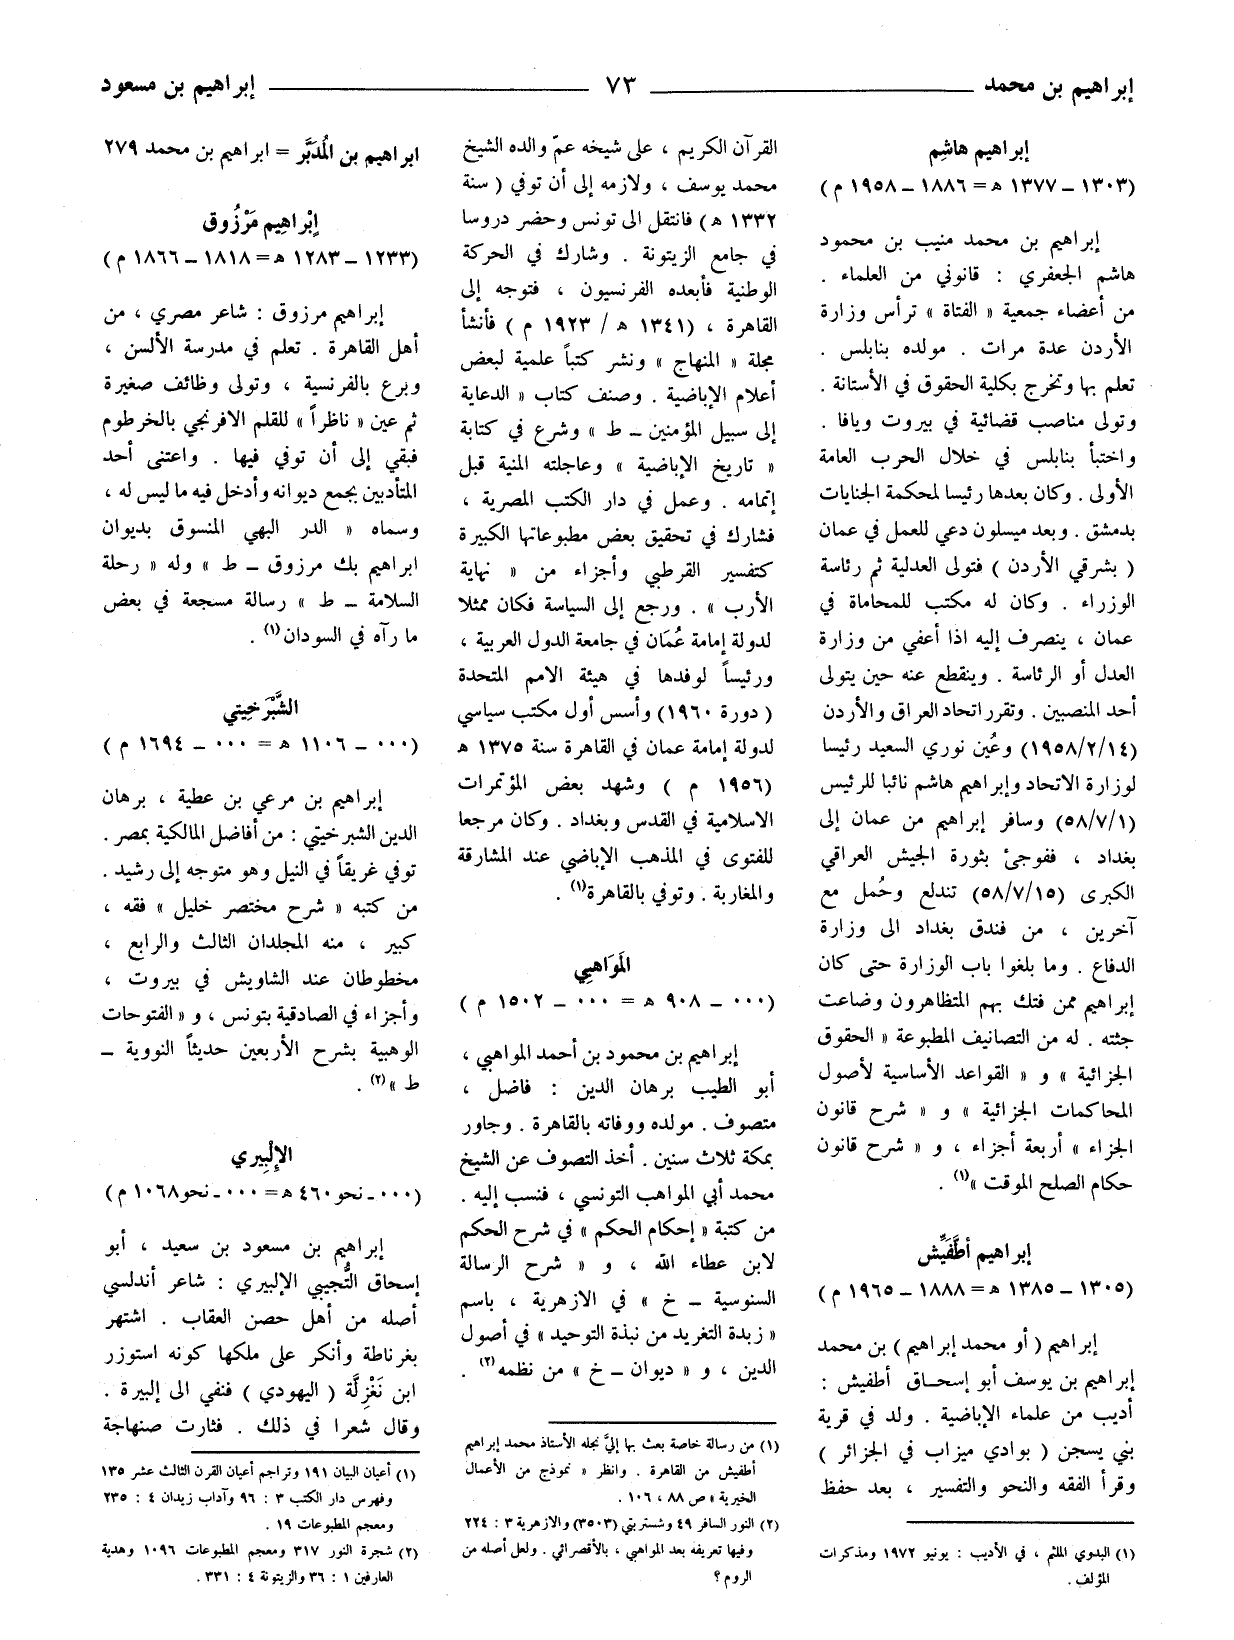 إبراهيم بن محمد ٧٣ إبراهيم بن مسعود
إبراهيم هاشِم
(١٣٠٣ – ١٣٧٧ هـ = ١٨٨٦ – ١٩٥٨ م)
إبراهيم بن محمد منيب بن محمود
هاشم الجعفري : قانوني من العلماء .
من أعضاء جمعية « الفتاة » ترأس وزارة
الأردن عدة مرات . مولده بنابلس .
تعلم بها وتخرج بكلية الحقوق في الأستانة .
وتولى مناصب قضائية في بيروت ويافا .
واختبأ بنابلس في خلال الحرب العامة
الأولى . وكان بعدها رئيسا لمحكمة الجنايات
بدمشق . وبعد ميسلون دعي للعمل في عمان
( بشرقي الأردن ) فتولى العدلية ثم رئاسة
الوزراء . وكان له مكتب للمحاماة في
عمان ، ينصرف إليه اذا أعفي من وزارة
العدل أو الرئاسة . وينقطع عنه حين يتولى
أحد المنصبين . وتقرر اتحاد العراق والأردن
(١٩٥٨/٢/١٤) وعُين نوري السعيد رئيسا
لوزارة الاتحاد وإبراهيم هاشم نائبا للرئيس
(٥٨/٧/١) وسافر إبراهيم من عمان إلى
بغداد ، ففوجئ بثورة الجيش العراقي
الكبرى (٥٨/٧/١٥) تندلع وحُمل مع
آخرين ، من فندق بغداد الى وزارة
الدفاع . وما بلغوا باب الوزارة حتى كان
إبراهيم ممن فتك بهم المتظاهرون وضاعت
جثته . له من التصانيف المطبوعة « الحقوق
الجزائية » و « القواعد الأساسية لأصول
المحاكمات الجزائية » و « شرح قانون
الجزاء » أربعة أجزاء ، و « شرح قانون
حكام الصلح الموقت »(١) .
إبراهيم أطَّفَيِّش
(١٣٠٥ – ١٣٨٥ هـ = ١٨٨٨ – ١٩٦٥ م)
إبراهيم ( أو محمد إبراهيم ) بن محمد
إبراهيم بن يوسف أبو إسحـاق أطفيش :
أديب من علماء الإباضية . ولد في قرية
بني يسجن ( بوادي ميزاب في الجزائر )
وقرأ الفقه والنحو والتفسير ، بعد حفظ
(١) البدوي الملثم ، في الأديب : يونيو ١٩٧٢ ومذكرات
المؤلف .
القرآن الكريم ، على شيخه عمّ والده الشيخ
محمد يوسف ، ولازمه إلى أن توفي ( سنة
١٣٣٢ هـ) فانتقل الى تونس وحضر دروسا
في جامع الزيتونة . وشارك في الحركة
الوطنية فأبعده الفرنسيون ، فتوجه إلى
القاهرة ، (١٣٤١ هـ / ١٩٢٣ م ) فأنشأ
مجلة « المنهاج » ونشر كتباً علمية لبعض
أعلام الإباضية . وصنف كتاب « الدعاية
إلى سبيل المؤمنين – ط » وشرع في كتابة
« تاريخ الإباضية » وعاجلته المنية قبل
إتمامه . وعمل في دار الكتب المصرية ،
فشارك في تحقيق بعض مطبوعاتها الكبيرة
كتفسير القرطبي وأجزاء من « نهاية
الأرب » . ورجع إلى السياسة فكان ممثلا
لدولة إمامة عُمَان في جامعة الدول العربية ،
ورئيساً لوفدها في هيئة الامم المتحدة
( دورة ١٩٦٠) وأسس أول مكتب سياسي
لدولة إمامة عمان في القاهرة سنة ١٣٧٥ هـ
(١٩٥٦ م ) وشهد بعض المؤتمرات
الاسلامية في القدس وبغداد . وكان مرجعا
للفتوى في المذهب الإباضي عند المشارقة
والمغاربة . وتوفي بالقاهرة(١) .
المَواهِبي
(٠٠٠ – ٩٠٨ هـ = ٠٠٠ – ١٥٠٢ م )
إبراهيم بن محمود بن أحمد المواهبي ،
أبو الطيب برهان الدين : فاضل ،
متصوف . مولده ووفاته بالقاهرة . وجاور
بمكة ثلاث سنين . أخذ التصوف عن الشيخ
محمد أبي المواهب التونسي ، فنسب إليه .
من كتبة « إحكام الحكم » في شرح الحكم
لابن عطاء الله ، و « شرح الرسالة
السنوسية – خ » في الازهرية ، باسم
« زبدة التغريد من نبذة التوحيد » في أصول
الدين ، و « ديوان – خ » من نظمه(٢) .
(١) من رسالة خاصة بعث بها إليَّ نجله الأستاذ محمد إبراهيم
أطفيش من القاهرة . وانظر « نموذج من الأعمال
الخيرية » ص ٨٨ ، ١٠٦ .
(٢) النور السافر ٤٩ وشستربتي (٣٥٠٣) والازهرية ٣ : ٢٢٤
وفيها تعريفه بعد المواهبي ، بالأقصرائي . ولعل أصله من
الروم ؟
ابراهيم بن المُدَبَّر = ابراهيم بن محمد ٢٧٩
إبْراهيم مَرْزُوق
(١٢٣٣ – ١٢٨٣ هـ = ١٨١٨ – ١٨٦٦ م)
إبراهيم مرزوق : شاعر مصري ، من
أهل القاهرة . تعلم في مدرسة الألسن ،
وبرع بالفرنسية ، وتولى وظائف صغيرة
ثم عين « ناظراً » للقلم الافرنجي بالخرطوم
فبقي إلى أن توفي فيها . واعتنى أحد
المتأدبين بجمع ديوانه وأدخل فيه ما ليس له ،
وسماه « الدر البهي المنسوق بديوان
ابراهيم بك مرزوق – ط » وله « رحلة
السلامة – ط » رسالة مسجعة في بعض
ما رآه في السودان(١) .
الشَّبْرَخيتي
(٠٠٠ – ١١٠٦ هـ = ٠٠٠ – ١٦٩٤ م )
إبراهيم بن مرعي بن عطية ، برهان
الدين الشبرخيتي : من أفاضل المالكية بمصر .
توفي غريقاً في النيل وهو متوجه إلى رشيد .
من كتبه « شرح مختصر خليل » فقه ،
كبير ، منه المجلدان الثالث والرابع ،
مخطوطان عند الشاويش في بيروت ،
وأجزاء في الصادقية بتونس ، و « الفتوحات
الوهبية بشرح الأربعين حديثاً النووية –
ط »(٢) .
الإلْبِيري
(٠٠٠ - نحو ٤٦٠ هـ = ٠٠٠ - نحو ١٠٦٨ م )
إبراهيم بن مسعود بن سعيد ، أبو
إسحاق التُّجيبي الإلبيري : شاعر أندلسي
أصله من أهل حصن العقاب . اشتهر
بغرناطة وأنكر على ملكها كونه استوزر
ابن نَغْزِلَّة ( اليهودي ) فنفي الى إلبيرة .
وقال شعرا في ذلك . فثارت صنهاجة
(١) أعيان البيان ١٩١ وتراجم أعيان القرن الثالث عشر ١٣٥
وفهرس دار الكتب ٣ : ٩٦ وآداب زيدان ٤ : ٢٣٥
ومعجم المطبوعات ١٩ .
(٢) شجرة النور ٣١٧ ومعجم المطبوعات ١٠٩٦ وهدية
العارفين ١ : ٣٦ والزيتونة ٤ : ٣٣١ .